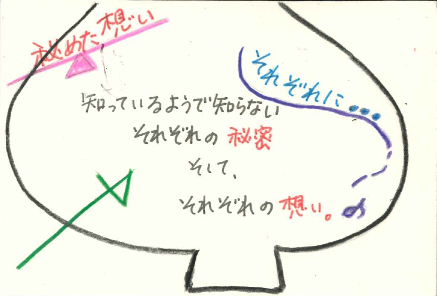 秘めた想い
それぞれに・・・
知っているようで知らない
それぞれの秘密
そして、
それぞれの想い。